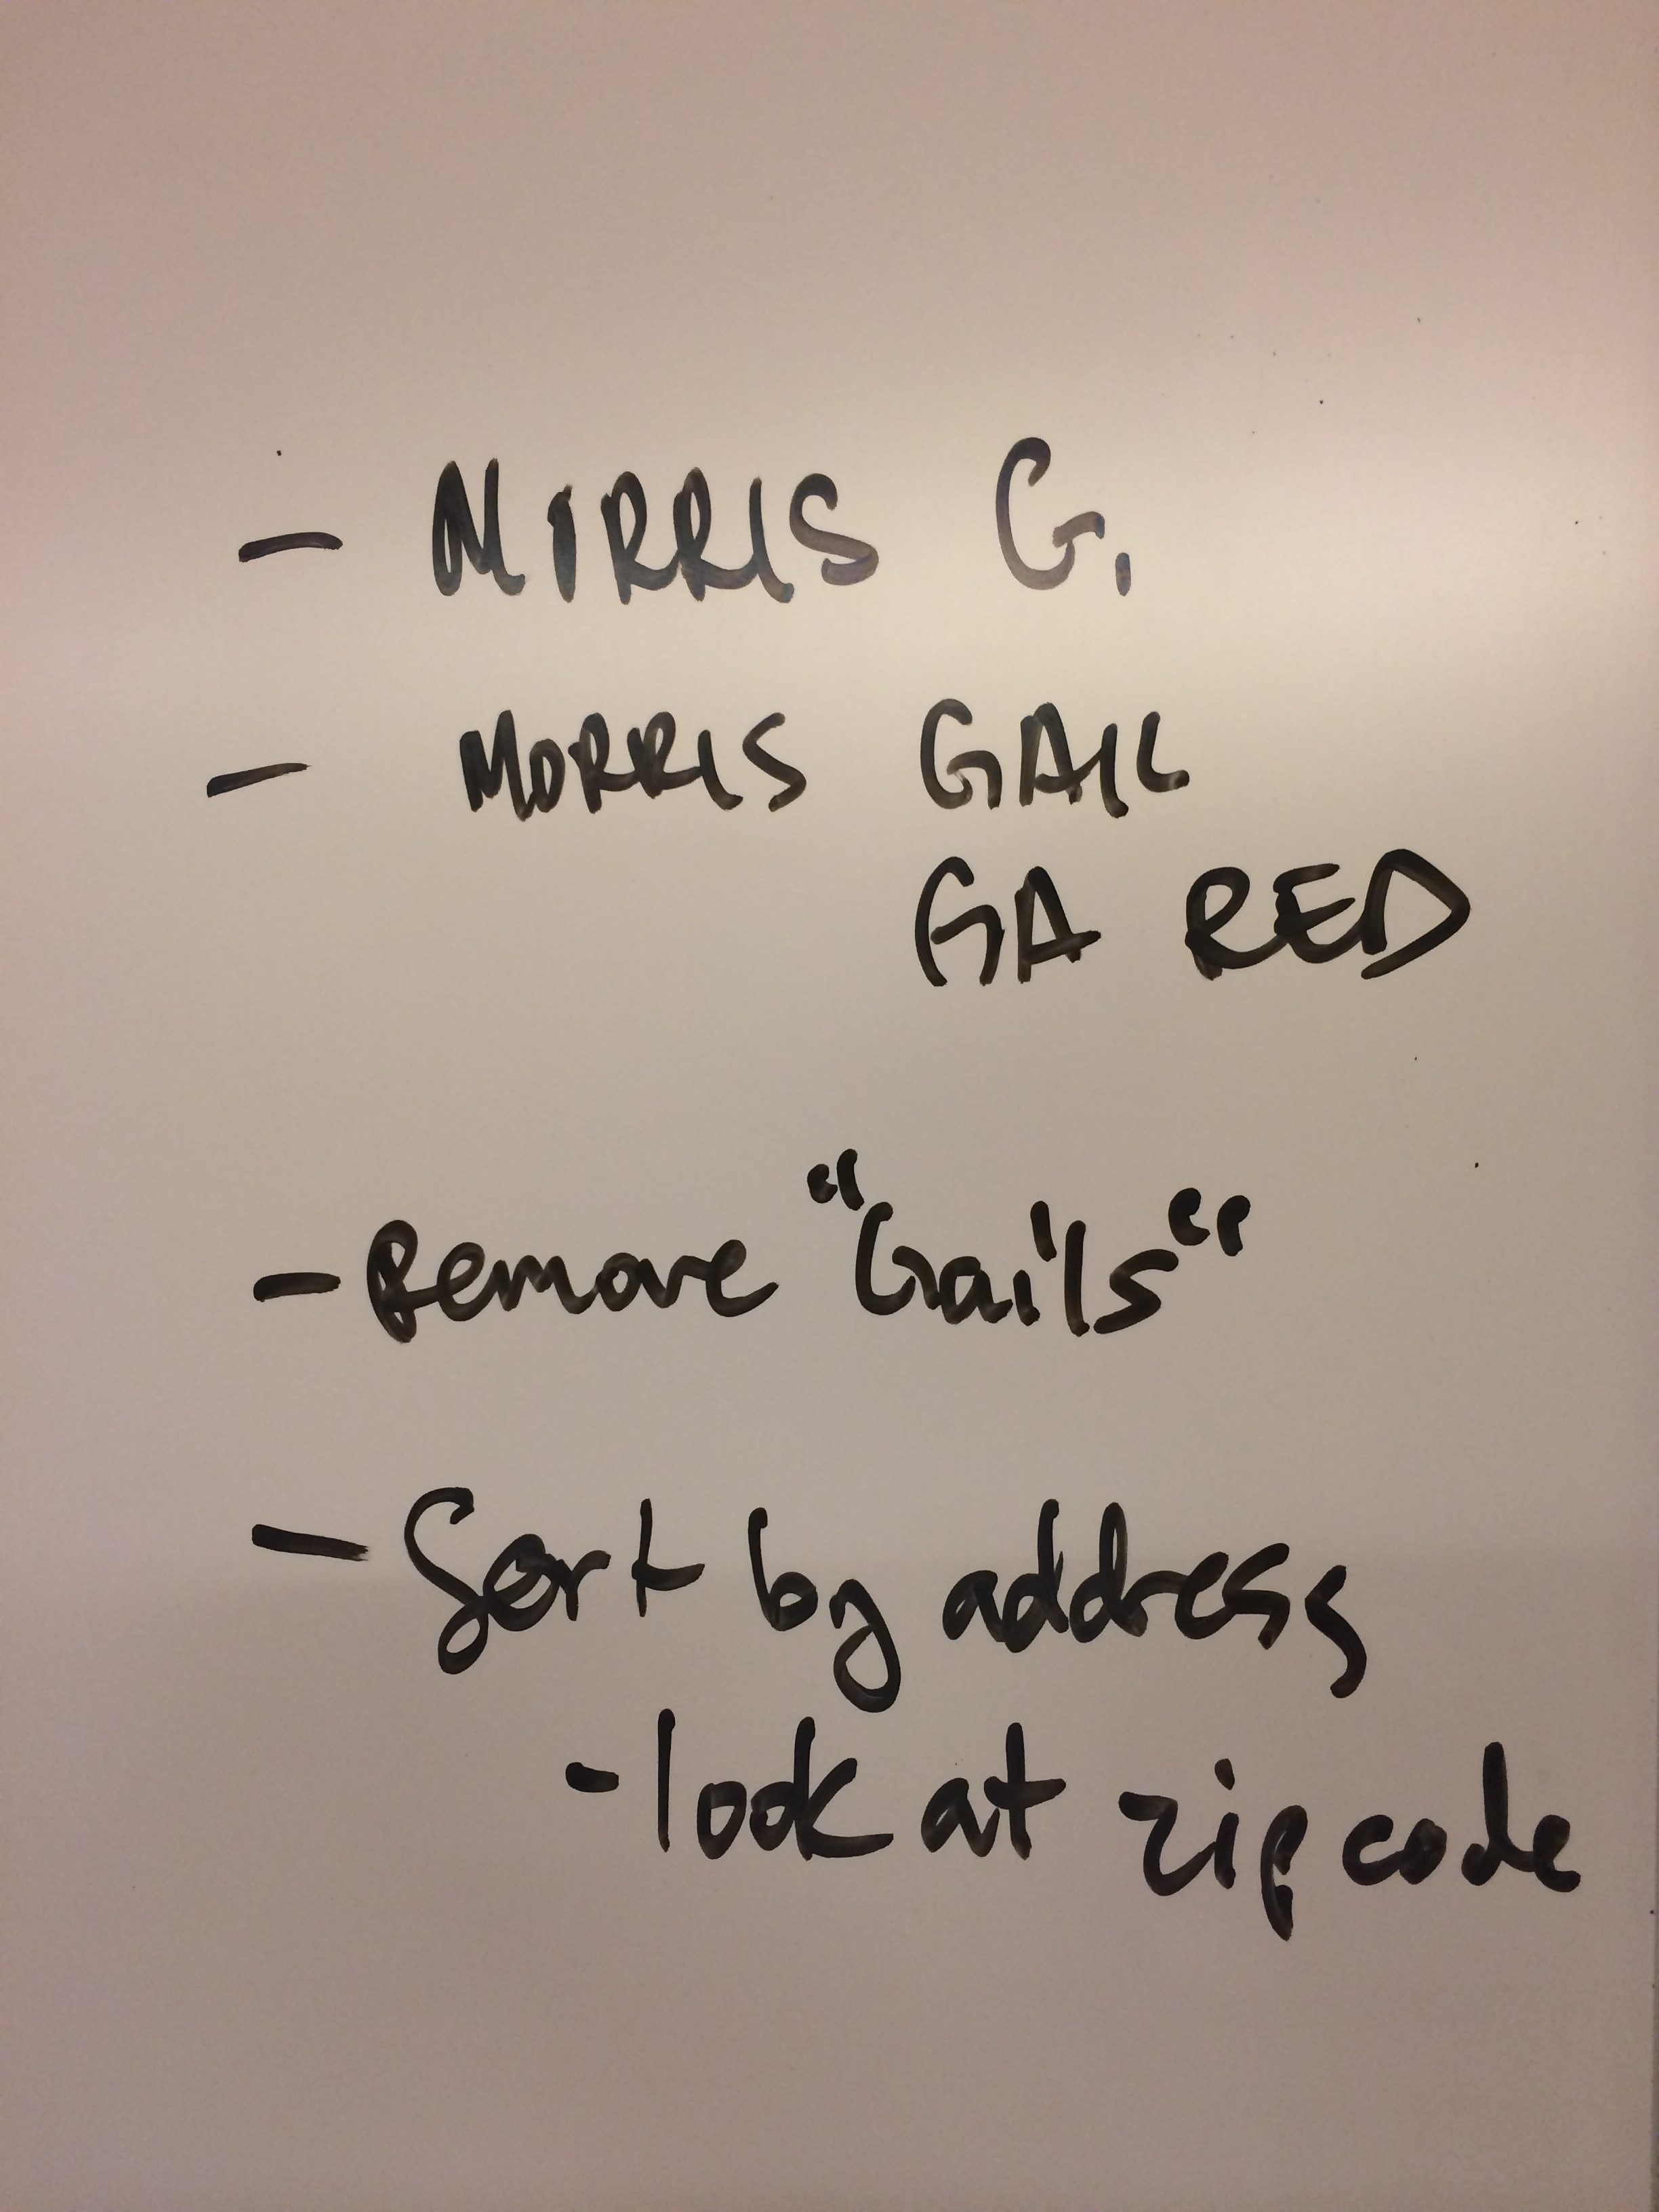 - MORRIS G.
- MORRIS GAIL
GA RED
- Remove "Gails"
- Sort by address
- look at zip code